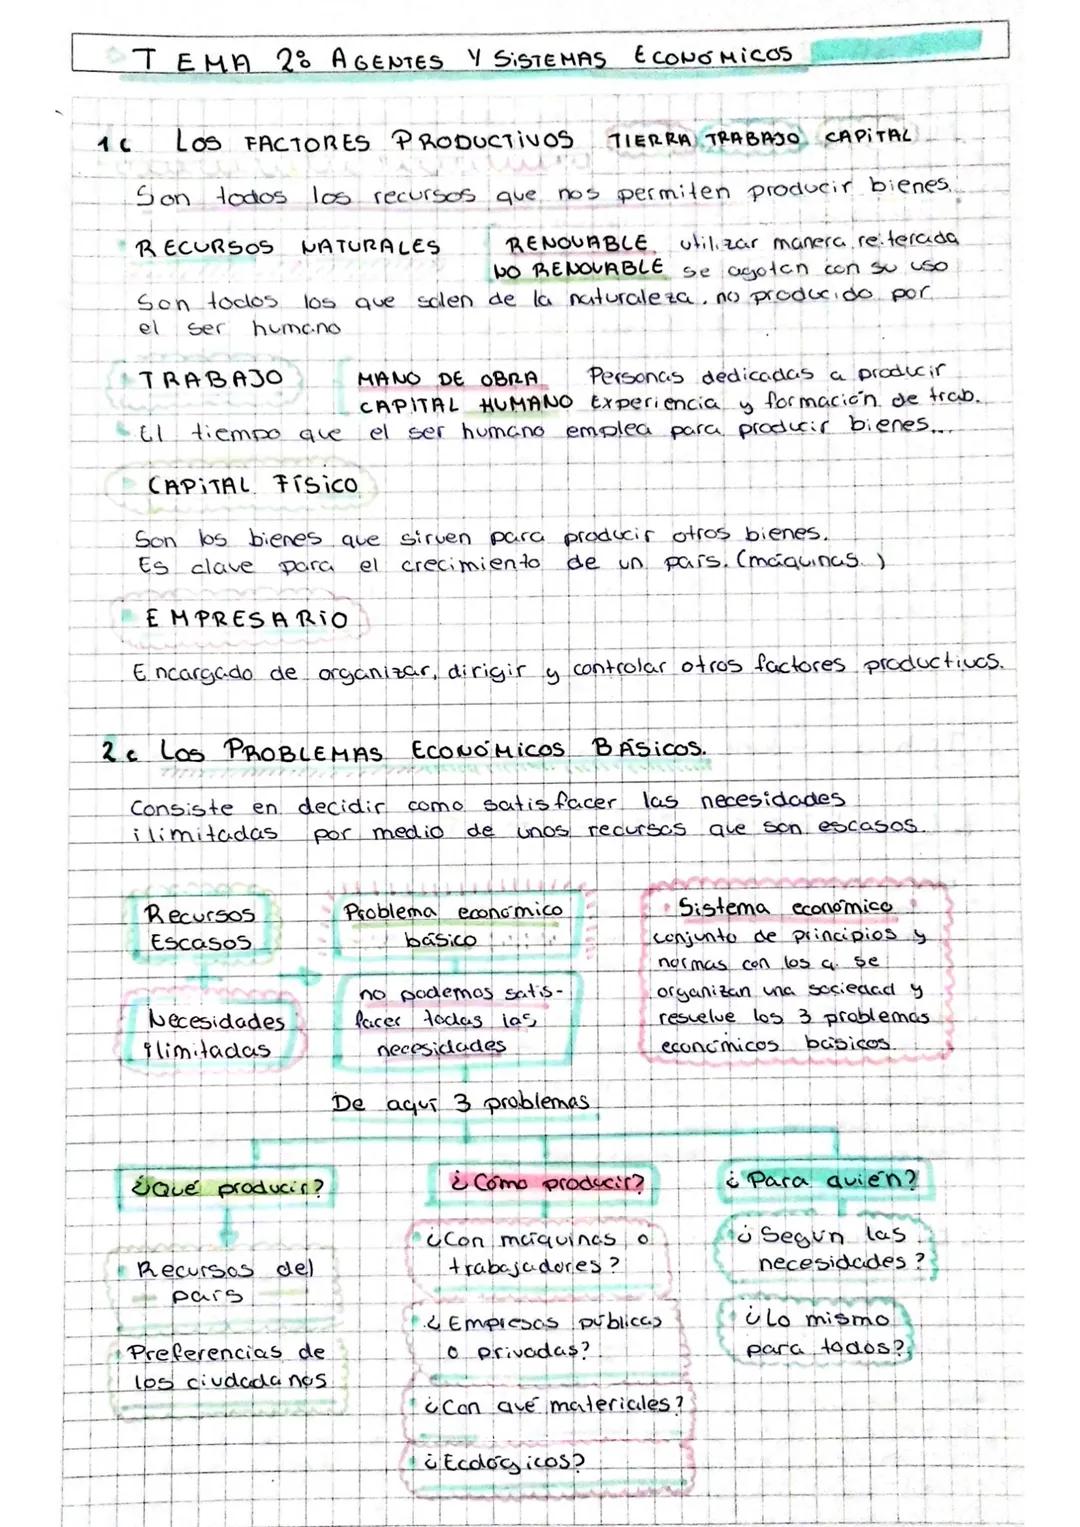 TEMA 2: AGENTES Y SISTEMAS ECONÓMICOS
1. LOS FACTORES PRODUCTIVOS TIERRA TRABAJO CAPITAL
Son todos los recursos que nos permiten producir bienes.
RECURSOS NATURALES RENOVABLE utilizar manera reiterada
NO RENOVABLE se agotan con su uso
Son todos los que salen de la naturaleza, no producido por
el ser humano
TRABAJO MANO DE OBRA Personas dedicadas a producir
CAPITAL HUMANO Experiencia y formación de trab.
El tiempo que el ser humano emplea para producir bienes...
CAPITAL FÍSICO
Son los bienes que sirven para producir otros bienes.
Es clave para el crecimiento de un país. (máquinas.)
EMPRESARIO
Encargado de organizar, dirigir y controlar otros factores productivos.
2. LOS PROBLEMAS ECONÓMICOS BÁSICOS.
Consiste en decidir como satisfacer las necesidades
ilimitadas por medio de unos recursos que son escasos.
Recursos
Escasos
Necesidades
ilimitadas
Problema económico
básico
no podemos satis-
facer todas las
necesidades
Sistema económico
conjunto de principios y
normas con los q. se
organizan una sociedad y
resuelve los 3 problemas
económicos básicos.
De aquí 3 problemas
¿Qué producir?
Recursos del
país
Preferencias de
los ciudadanos
¿Cómo producir?
¿Con máquinas o
trabajadores?
¿Empresas públicas
o privadas?
¿Con qué materiales?
¿Ecológicos?
¿Para quién?
¿Según las
necesidades?
¿Lo mismo
para todos?